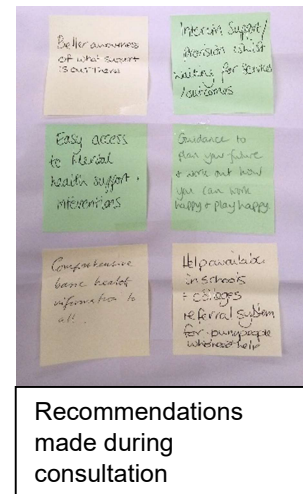 Better awareness
of what support
is out there
Interim Support/
provision whilst
waiting for services
/outcomes
Easy access
to Mental
health support +
interventions
Guidance to
plan your future
+ work out how
you can work
happy + play happy
Comprehensive
basic health
information to
all.
Help available
in schools
+ colleges
referral system
for young people
who need help
Recommendations
made during
consultation